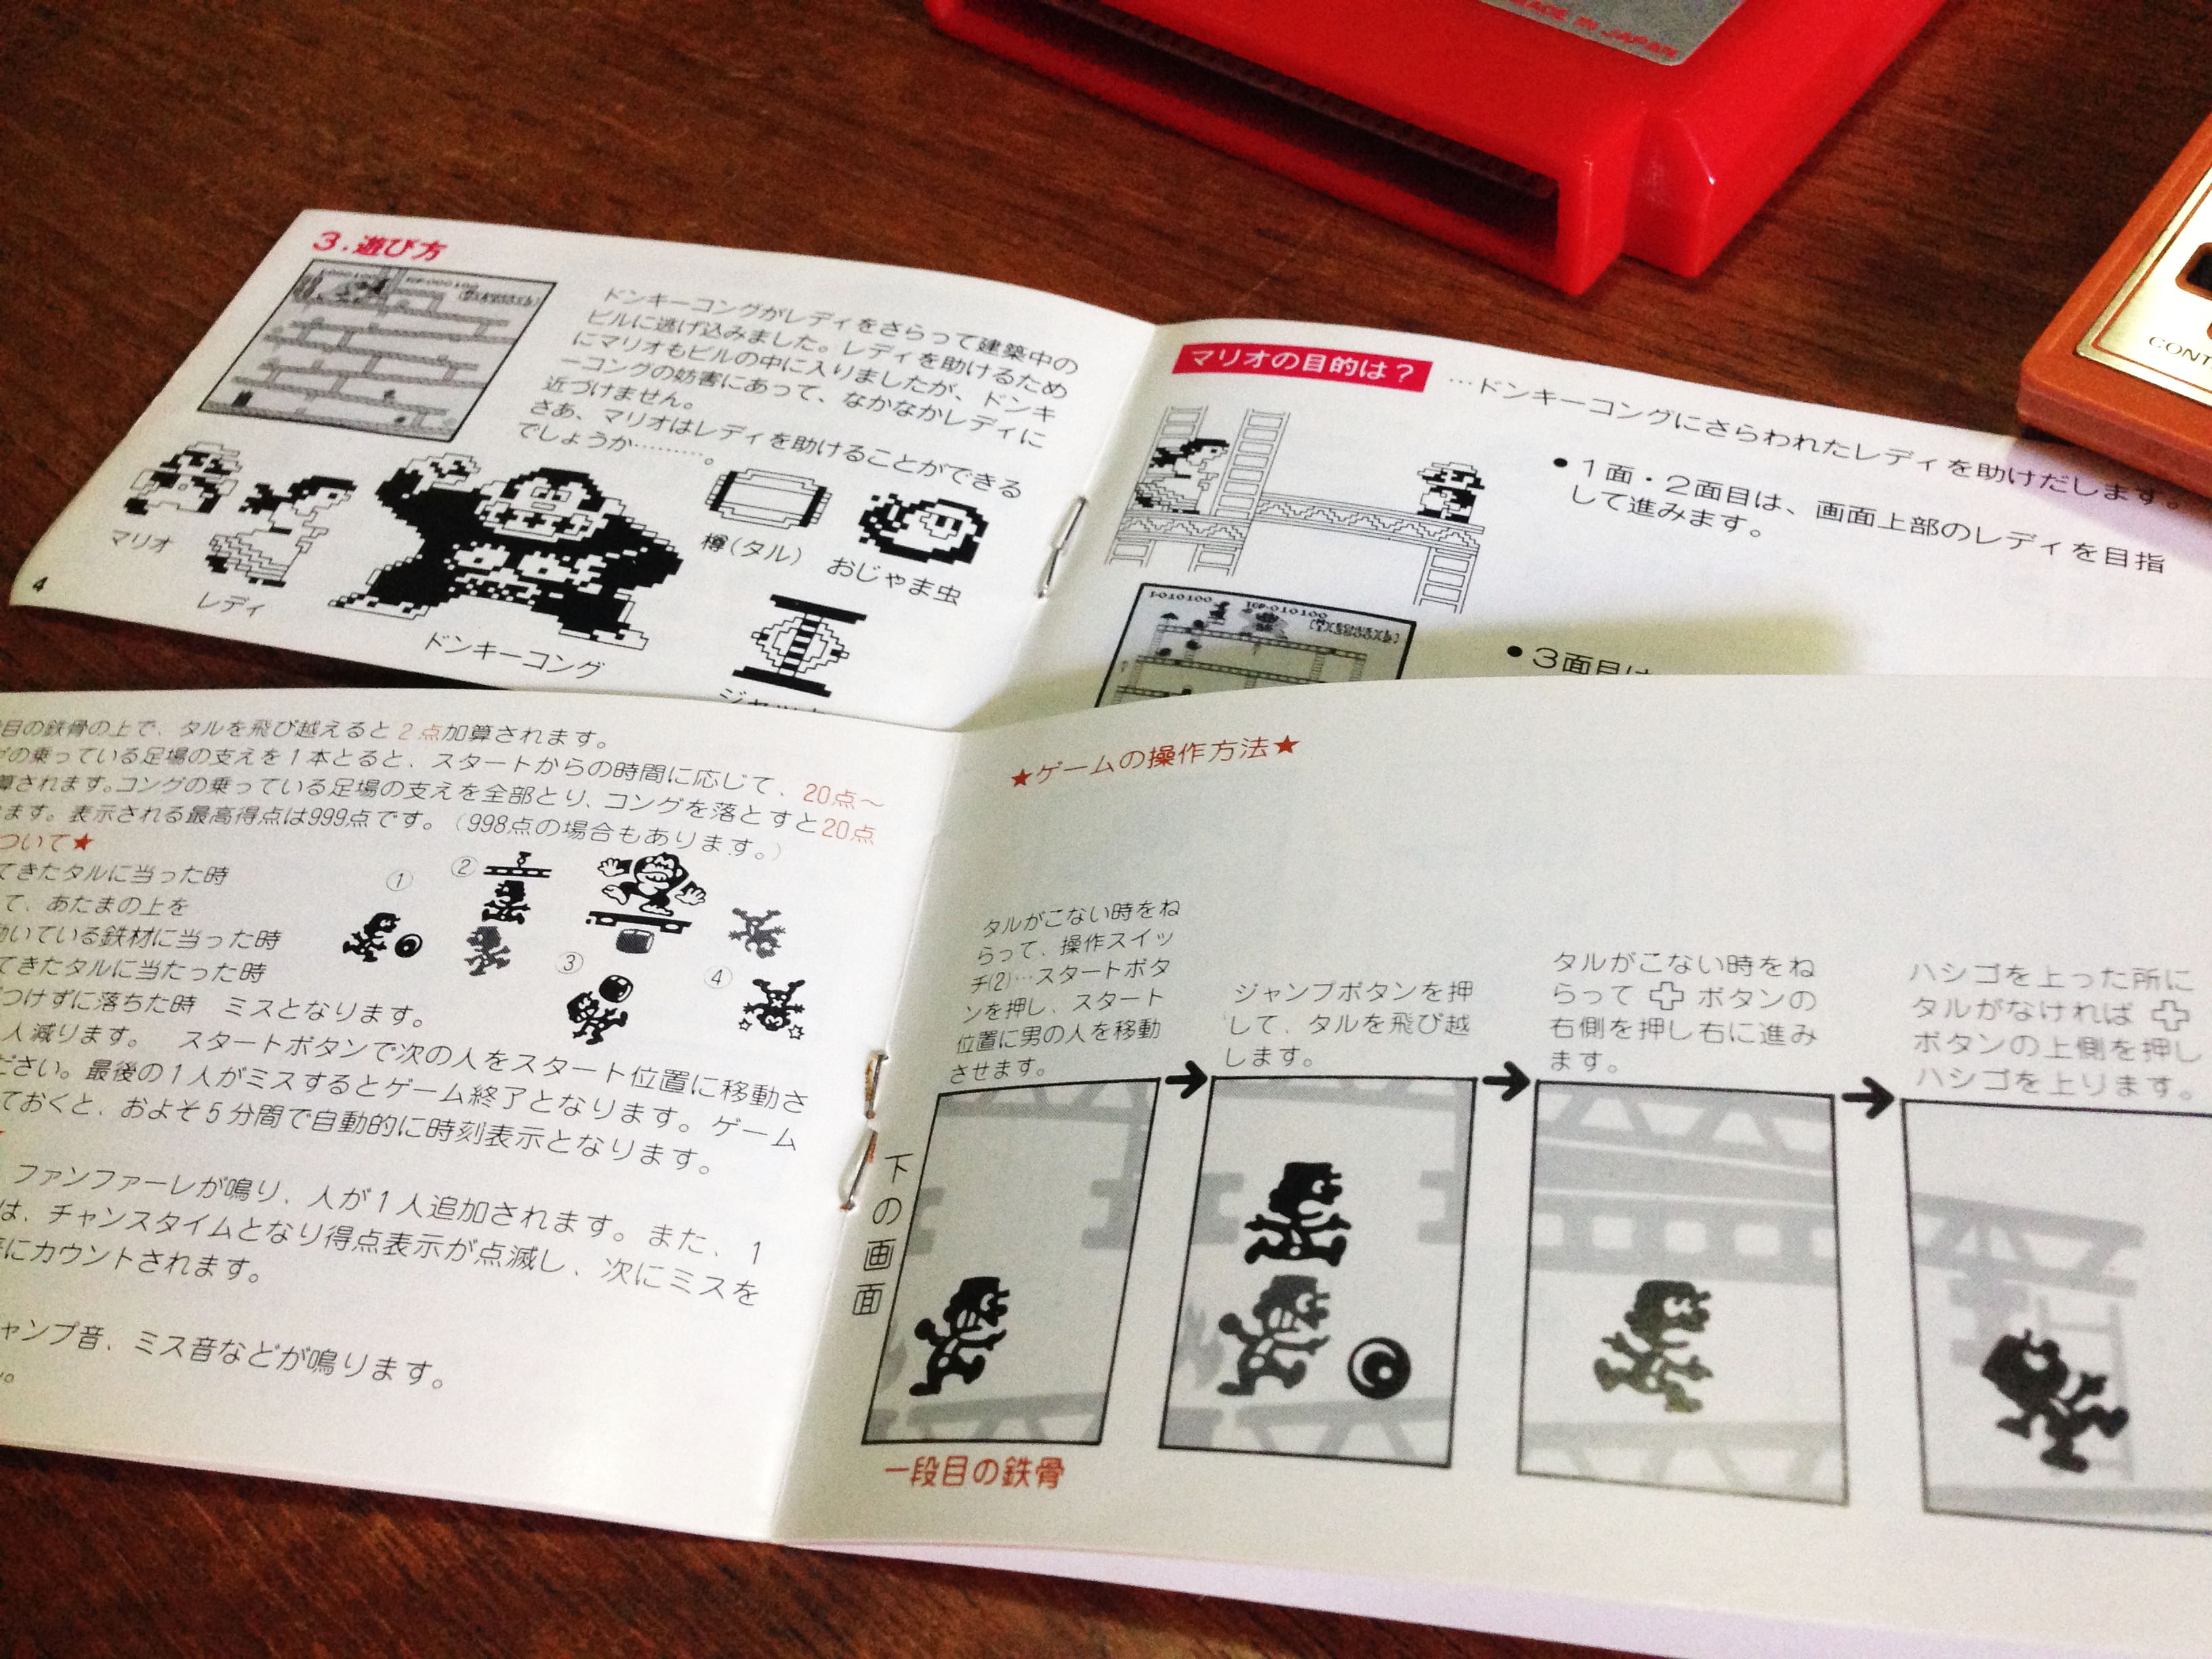 MADE IN JAPAN
CONT
3.遊び方
ドンキーコングがレディをさらって建築中の
ビルに逃げ込みました。レディを助けるため
にマリオもビルの中に入りましたが、ドンキ
ーコングの妨害にあって、なかなかレディに
近づけません。
さあ、マリオはレディを助けることができる
でしょうか………。
マリオ
レディ
ドンキーコング
樽(タル)
おじゃま虫
4
マリオの目的は?
…ドンキーコングにさらわれたレディを助けだします。
●1面・2面目は、画面上部のレディを目指
して進みます。
●3面目は
目の鉄骨の上で、タルを飛び越えると2点加算されます。
の乗っている足場の支えを1本とると、スタートからの時間に応じて、20点〜
算されます。コングの乗っている足場の支えを全部とり、コングを落とすと20点
ます。表示される最高得点は999点です。(998点の場合もあります。)
ついて★
てきたタルに当った時
て、あたまの上を
動いている鉄材に当った時
てきたタルに当たった時
つけずに落ちた時 ミスとなります。
① ② ③ ④
人減ります。 スタートボタンで次の人をスタート位置に移動さ
ださい。最後の1人がミスするとゲーム終了となります。ゲーム
ておくと、およそ5分間で自動的に時刻表示となります。
ファンファーレが鳴り、人が1人追加されます。また、1
は、チャンスタイムとなり得点表示が点滅し、次にミスを
にカウントされます。
ャンプ音、ミス音などが鳴ります。
★ゲームの操作方法★
タルがこない時をね
らって、操作スイッ
チ(2)…スタートボタ
ンを押し、スタート
位置に男の人を移動
させます。
ジャンプボタンを押
して、タルを飛び越
します。
タルがこない時をね
らって ✚ ボタンの
右側を押し右に進み
ます。
ハシゴを上った所に
タルがなければ ✚
ボタンの上側を押し
ハシゴを上ります。
下の画面
一段目の鉄骨